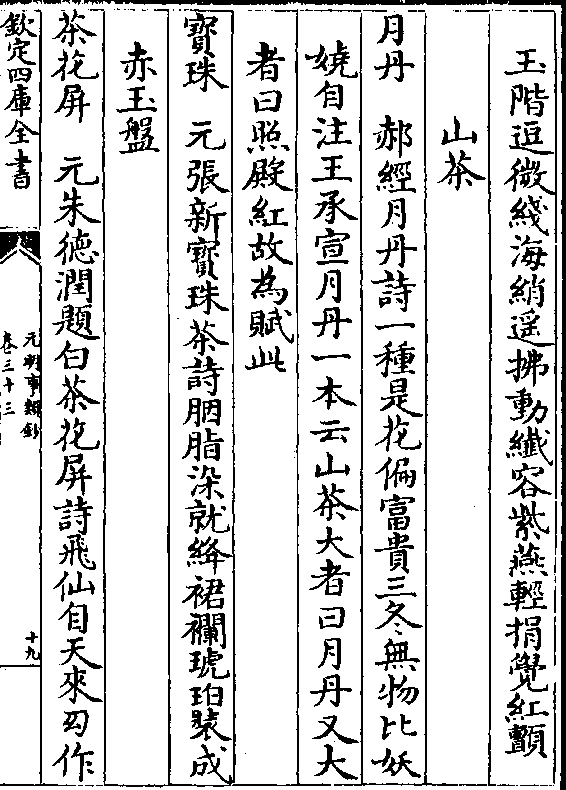 玉階逗微綫海綃遥拂動纎容紫燕輕捐覺紅顫
山茶
月丹　郝經月丹詩一種是花偏富貴三冬無物比妖
嬈自注王承宣月丹一本云山茶大者曰月丹又大
者曰照殿紅故為賦此
寳珠　元張新寳珠茶詩胭脂染就絳裙襴琥珀裝成
赤玉盤
茶花屏　元朱德潤題白茶花屏詩飛仙自天來幻作
欽定四庫全書
元明事類鈔
卷三十三
十九